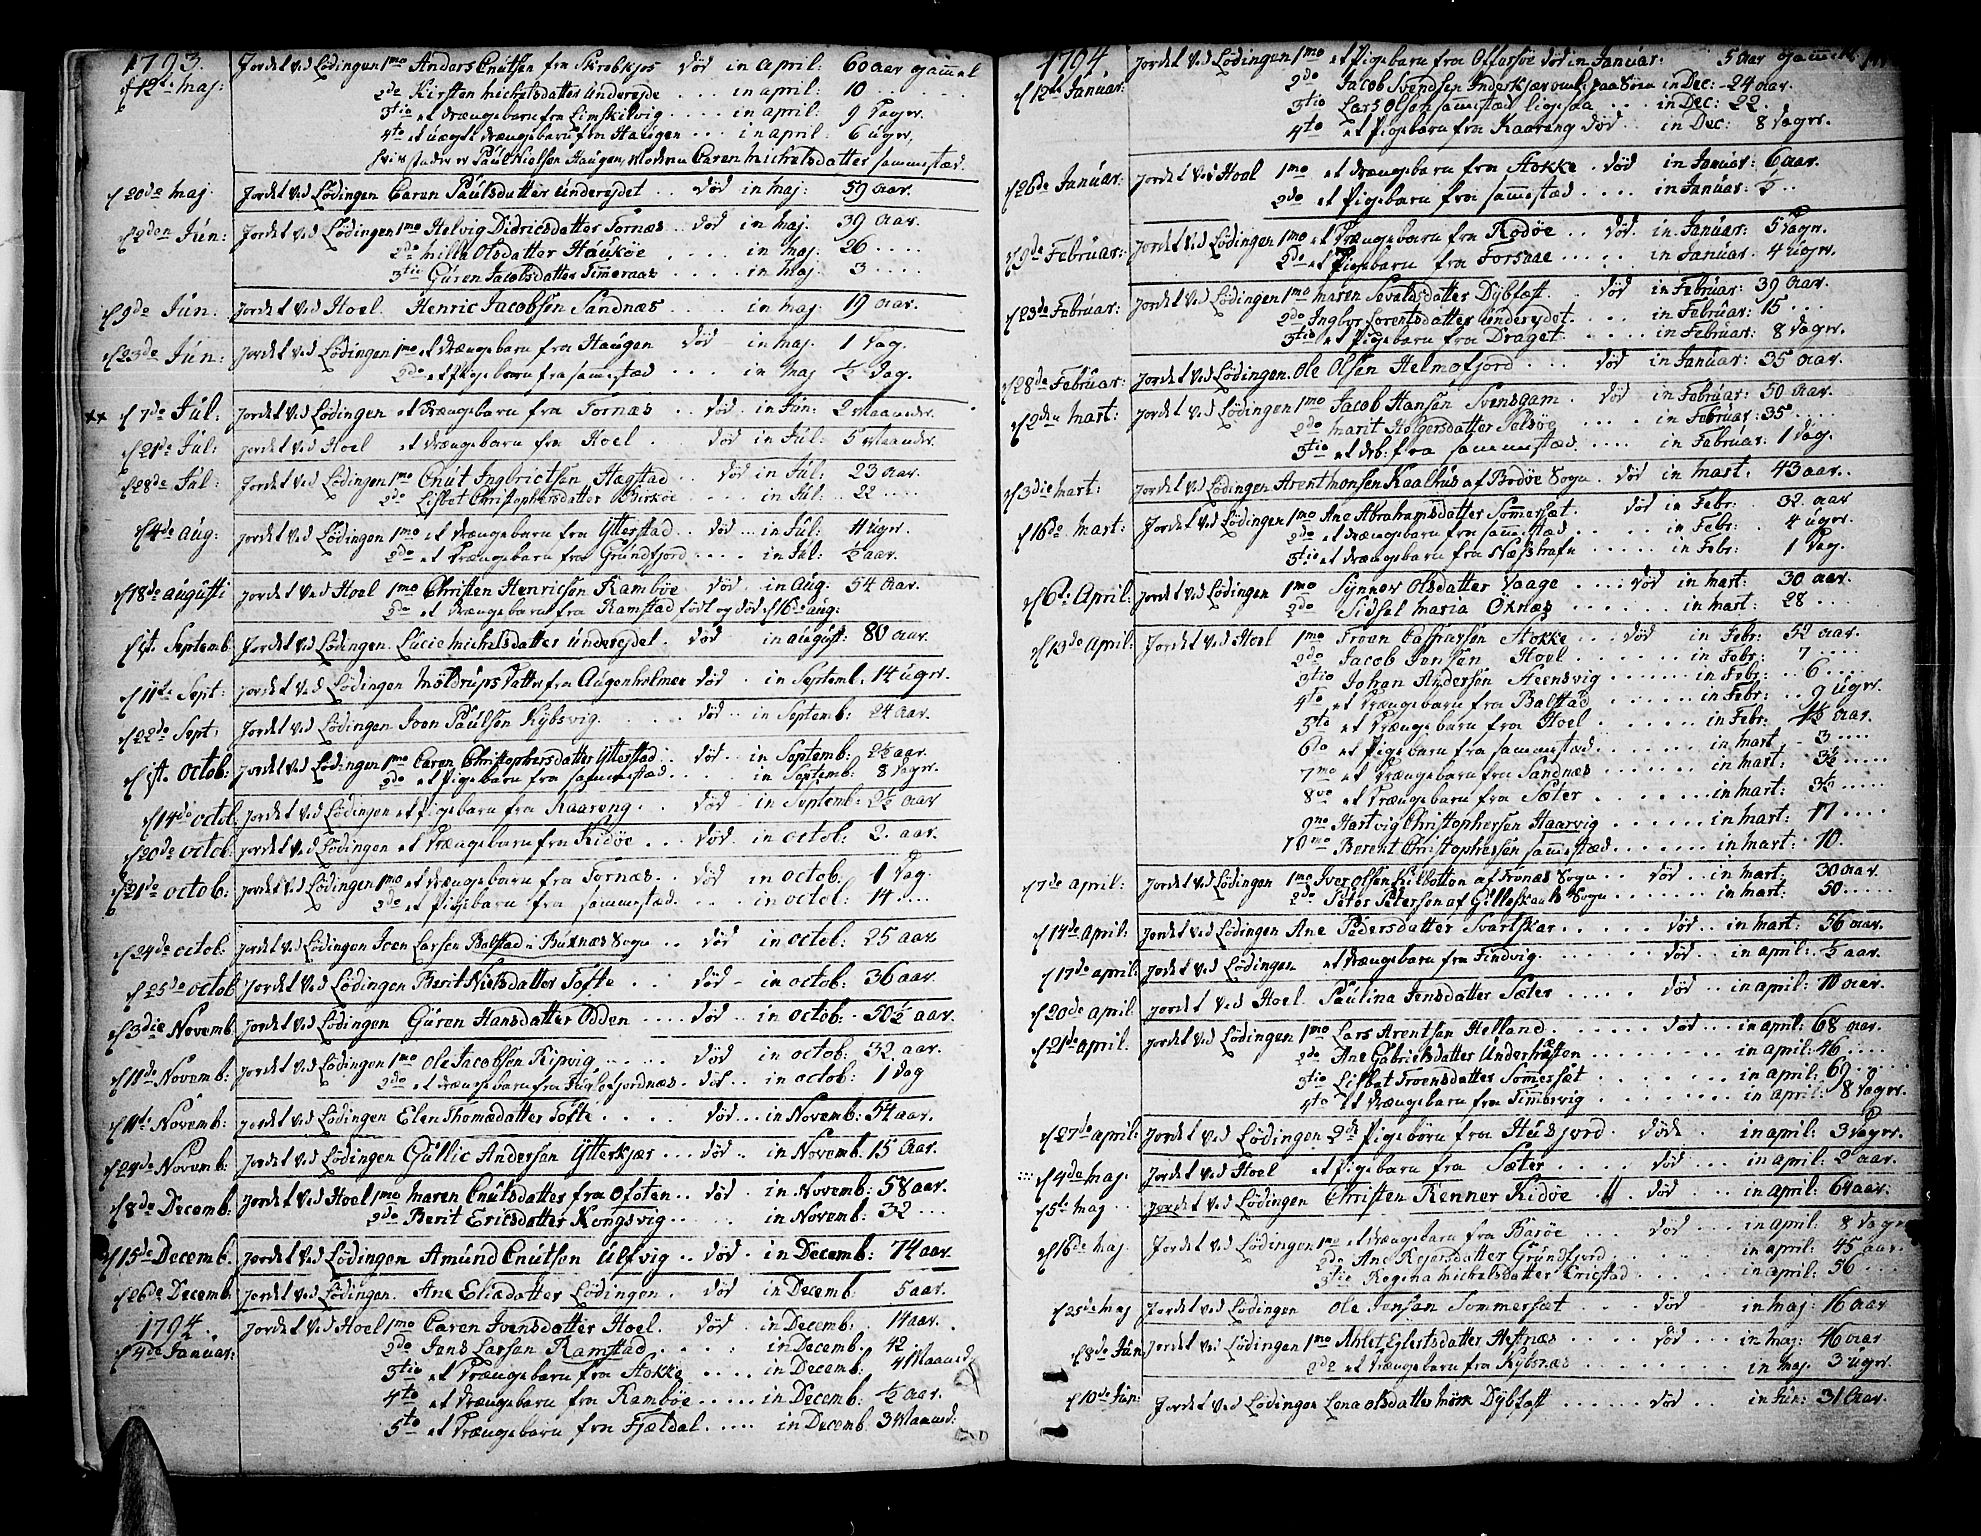 1793.
d 12te Maj: Jordet ved Lödingen 1mo Anders Cnutsen fra Skrobkjos död in April: 60 aar gammel
2do Kirsten Michelsdatter Undereyde ... in april: 10 ......
3tio et drængebarn fra Limskilvig .... in april: 9 Dager.
4to et uægte drængebarn fra Haugen ... in april: 6 uger,
Paul Nielsen Haugen, Moderen Caren Michelsdatter sammestæd.
d 20de Maj. Jordet ved Lödingen Caren Paulsdatter Undereydet .. död in Maj: 59 aar.
d 2den Jun: Jordet ved Lödingen 1mo Helvig Didricsdatter Fornæs .. död in Maj. 39 aar.
2do Milla Olsdatter Hauköe ..... in Maj. 26 ....
3tio Guren Jacobsdatter Timeraas ..... in Maj: 3 .....
d 9de Jun: Jordet ved Hoel. Henric Jacobsen Sandnæs .... in Maj. 19 aar.
d 23de Jun: Jordet ved Lödingen 1mo et drængebarn fra Haugen död - in Maj. 1 Dag.
2do et Pigebarn fra samestæd .... in Maj ½ Dag.
d 7de Jul: Jordet ved Lödingen et Drængebarn fra Fornæs .. död . in Jun: 2 Maaneder.
d 21de Jul: Jordet ved Hoel et drængebarn fra Hoel . död . in Jul: 5 Maaneder.
d 28de Jul: Jordet ved Lödingen 1mo Cnut Ingbrictsen Hagstad .. död in Jul: 23 aar.
2do Lisbet Christophersdatter Birköe ... in Jul: 22 .....
d 4de Aug: Jordet ved Lödingen 1mo et drængebarn fra Ytterstad.. död ... in Jul: 11 uger.
2do et Drængebarn fra Grundfjord .... in Jul: ½ aar.
d 18de Augusti Jordet ved Hoel 1mo Christen Henricsen Ramböe död . in Aug: 54 aar.
2do et drængebarn fra Ramstad födt og död d 16de Aug:
d 1ste Septemb. Jordet ved Lödingen. Lucie Michelsdatter Undereydet. död . in August: 80 aar.
d 11te Sept: Jordet ved Lödingen Möldrups datter fra Augenholmen död . in Septemb: 14 uger.
d 22de Sept: Jordet ved Lödingen Joen Paulsen Kybsvig ..... död .. in Septemb: 24 aar.
d 1ste Octob: Jordet ved Lödingen 1mo Caren Christophersdatter Ytterstad . död .. in Septemb: 2½ aar.
2do et Pigebarn fra sammestæd ..... in Septemb: 8 Dager.
d 14de Octob. Jordet ved Lödingen et Pigebarn fra Kaareng ... död - in Septemb: 2½ aar
d 20de Octob. Jordet ved Lödingen et Drængebarn fra Ridöe ... död . in Octob: 2. aar.
d 21de Octob: Jordet ved Lödingen 1mo et drængebarn fra Fornæs .. död in Octob: 1 Dag
2do et Pigebarn fra sammestæd ..... in Octob: 14 ....
d 24de Octob. Jordet ved Lödingen Joen Larsen Balstad i Buxnæs Sogn .. död in Octob: 25 aar
d 25de Octob Jordet ved Lödingen Berit Nielsdatter Tofte .. död - in Octob: 36 aar.
d 3die Novemb. Jordet ved Lödingen Guren Hansdatter Odden .... död .. in Octob: 50½ aar.
d 11de Novemb: Jordet ved Lödingen 1mo Ole Jacobsen Kipvig ..... död in Octob: 32. aar.
2do et drængebarn fra Fuglefjordnæs. död .. in Octob: 1 Dag
d 17de Novemb: Jordet ved Lödingen Elen Thomædatter Tofte ... död ... in Novemb: 54 aar.
d 24de Novemb: Jordet ved Lödingen Gullic Andersen Ytterkjær ... död . in Novemb. 15 aar.
d 8de Decemb: Jordet ved Hoel 1mo Maren Cnutsdatter fra Ofoten .. död . in Novemb: 58 aar.
2do Berit Ericsdatter Kongsvig ..... in Novemb: 32 ...
d 15de Decemb. Jordet ved Lödingen Amund Cnutsen Ulfvig .. död .. in Decemb: 74 aar.
d 26de Decemb: Jordet ved Lödingen. Ane Eliædatter Lödingen .. död . in Decemb: 5 aar.
1794.
d 4de Januar: Jordet ved Hoel 1mo Caren Ivensdatter Hoel. död . in Decemb: 14 aar.
2do Jens Larsen Ramstad ..... in Decemb. 42 .
3tio et Drængebarn fra Stokke ..... in Decemb: 4 Maaned:
4to et Drængebarn fra Ramböe ...... in Decemb. ½ aar.
5to et Drængebarn fra Fjældal ...... in Decemb. 3 Maaned:
1794
d 12te Januar: Jordet ved Lödingen 1mo et Pigebarn fra Offersöe död in Januar: 5 aar gammel
2do Jacob Svendsen Inderkjær omk: paa Söen in Dec: 24 aar.
3tio Lars Olsen samestæd ligesaa ... in Dec: 22.
4to et Pigebarn fra Kaareng död .. in Dec: 8 Dager.
d 26de Januar: Jordet ved Hoel 1mo et Drængebarn fra Stokke död in Januar: 6 aar.
2do et Pigebarn fra samestæd .... in Januar: ½ ..
d 9de Februar: Jordet ved Lödingen 1mo et Drængebarn fra Rödöe .. död . in Januar: 5 Dager.
2do et Pigebarn fra Forsaae ..... in Januar. 4 uger.
d 23de Februar: Jordet ved Lödingen 1mo Maren Sevaldsdatter Dybtæft . död in Februar: 39 aar.
2do Ingbor Lorentsdatter Undereydet ... in Februar: 15 ...
3tio et Pigebarn fra Draget ..... in Februar: 8 Dager.
d 28de Februar: Jordet ved Lödingen. Ole Olsen Helmofjord ... död in Januar: 35 aar.
d 2den Mart: Jordet ved Lödingen 1mo Jacob Hansen Svensgam . död in Februar: 50 aar.
2do Marit Holgersdatter Pelsöe .... in Februar: 35 ....
3tio et drb: fra sammestæd ..... in Februar: 1 Dag.
d 3die Mart: Jordet ved Lödingen Arent Monsen Kaalhus af Bodöe Sogn . död in Mart: 43 aar.
d 16de Mart: Jordet ved Lödingen 1mo Ane Abrahamsdatter Sommersæt. död in Febr: 32 aar
2do et drængebarn fra sammestæd ..... in Febr: 4 uger.
3tio et drængebarn fra Næshafn ..... in Febr: 1 Dag.
d 6te April: Jordet ved Lödingen 1mo Synnev Olsdatter Vaage .... död in Mart: 30 aar.
2do Sidsel Maria Öxnæs ..... in Mart: 28 ....
d 13de April: Jordet ved Hoel 1mo Troen Caspersen Stokke ... död in Febr: 52 aar.
2do Jacob Jensen Hoel ..... in Febr: 7 .....
3tio Johan Andersen Steensvig ...... in Febr: .. 6 ....
4to et Drængebarn fra Balstad ...... in Febr: .. 9 uger.
5to et Drængebarn fra Hoel ...... in Febr: 1½ aar.
6to et Pigebarn fra sammestæd ...... in Mart, .. 3 ....
7mo et Drængebarn fra Sandnæs ...... in Mart: 3½ .....
8vo et Drængebarn fra Sæter ...... in Mart: 3½ .....
9no Hartvig Christophersen Haarvig ...... in Mart: 17 ....
10mo Berent Christophersen samestæd ...... in Mart: 10.
d 7de April: Jordet ved Lödingen 1mo Iver Olsen Kilbotten af Tronæs Sogn .. död .. in Mart: 30 aar.
2do Peter Petersen af Gilleskaals Sogn ..... in Mart: 50 .....
d 14de April: Jordet ved Lödingen Ane Pedersdatter Svartskar ..... död .. in Mart: 56 aar.
d 17de April: Jordet ved Lödingen et drængebarn fra Findvig ...... död ... in April: ½ aar.
d 20de April Jordet ved Hoel. Paulina Jensdatter Sæter .... död ... in April: 10 aar.
d 21de April: Jordet ved Lödingen 1mo Lars Arentsen Helland ..... död ... in April: 68 aar.
2do Ane Gabrielsdatter Underhæften .... in April: 46 .....
3tio Lisbet Troensdatter Sommersæt ..... in April: 69 ....
4to et Drængebarn fra Timersvig ...... in April: 8 Dager.
d 27de April: Jordet ved Lödingen 2de Pigebörn fra Husjord . döde ... in April: 3 Dager.
d 4de Maj. Jordet ved Hoel et Pigebarn fra Sæter .... död ... in April: 2 aar.
d 5te Maj Jordet ved Lödingen Christen Kenner Kidöe . död ... in April: 64 aar.
d 16de Maj. Jordet ved Lödingen et drængebarn fra Baröe ... död ... in April: 8 Dage
2do Ane Rejersdatter Grundfjord ..... in April: 45 aar.
3tio Regina Michelsdatter Ericstad ..... in April: 56 ....
d 25de Maj Jordet ved Lödingen Ole Jensen Sommersæt ... död .... in Maj: 16 aar
d 8de Jun Jordet ved Lödingen 1mo Ablet Eylertsdatter Hestnæs ..... död ... in Maj: 46 aar
2do et Drængebarn fra Kybsnæs ..... in Maj. 3 uger.
d 10de Jun: Jordet ved Lödingen Lena Olsdatter Dybtæft ... död ... in Jun: 31 aar.